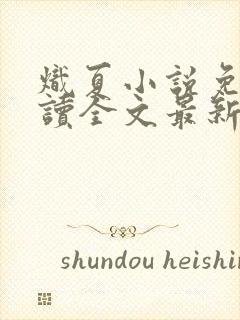 熾夏小說免
讀全文最新
shundou heishin